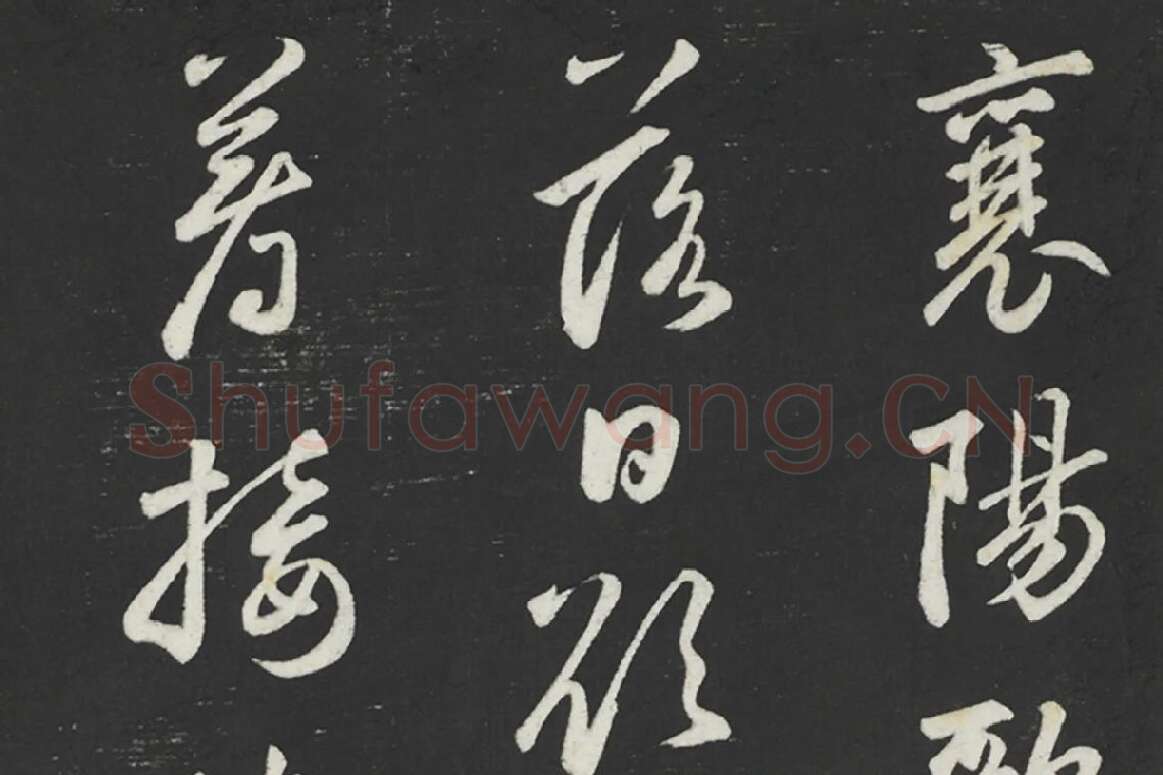 襄陽歌
落日欲
著接
Shufawang.CN